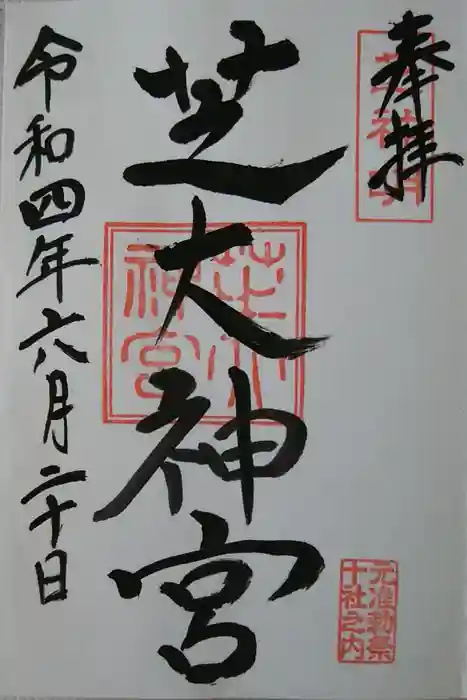 奉拝
芝神明
芝大神宮
芝大神宮
令和四年六月二十日
元准勅祭
十社之内